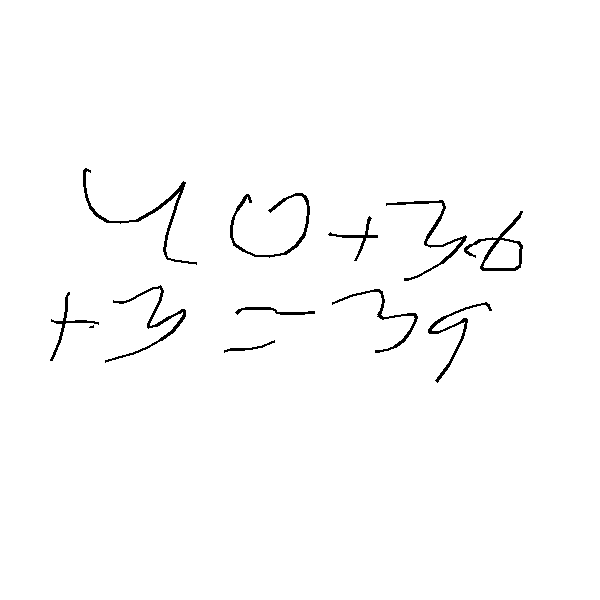 40+36
+3=39